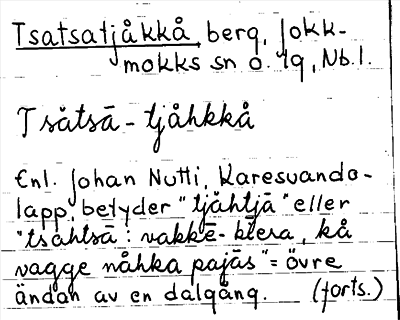 Tsatsatjåkkå, berg, Jokk-
mokks sn o. tg, Nb.l.
Tsătsā-tjåhkkå
Enl. Johan Nutti, Karesuando-
lapp, betyder "tjåhtjā" eller
"tsåhtsā: vakkē-biera, kå
vagge nåhka pajās" = övre
ändan av en dalgång. (forts.)